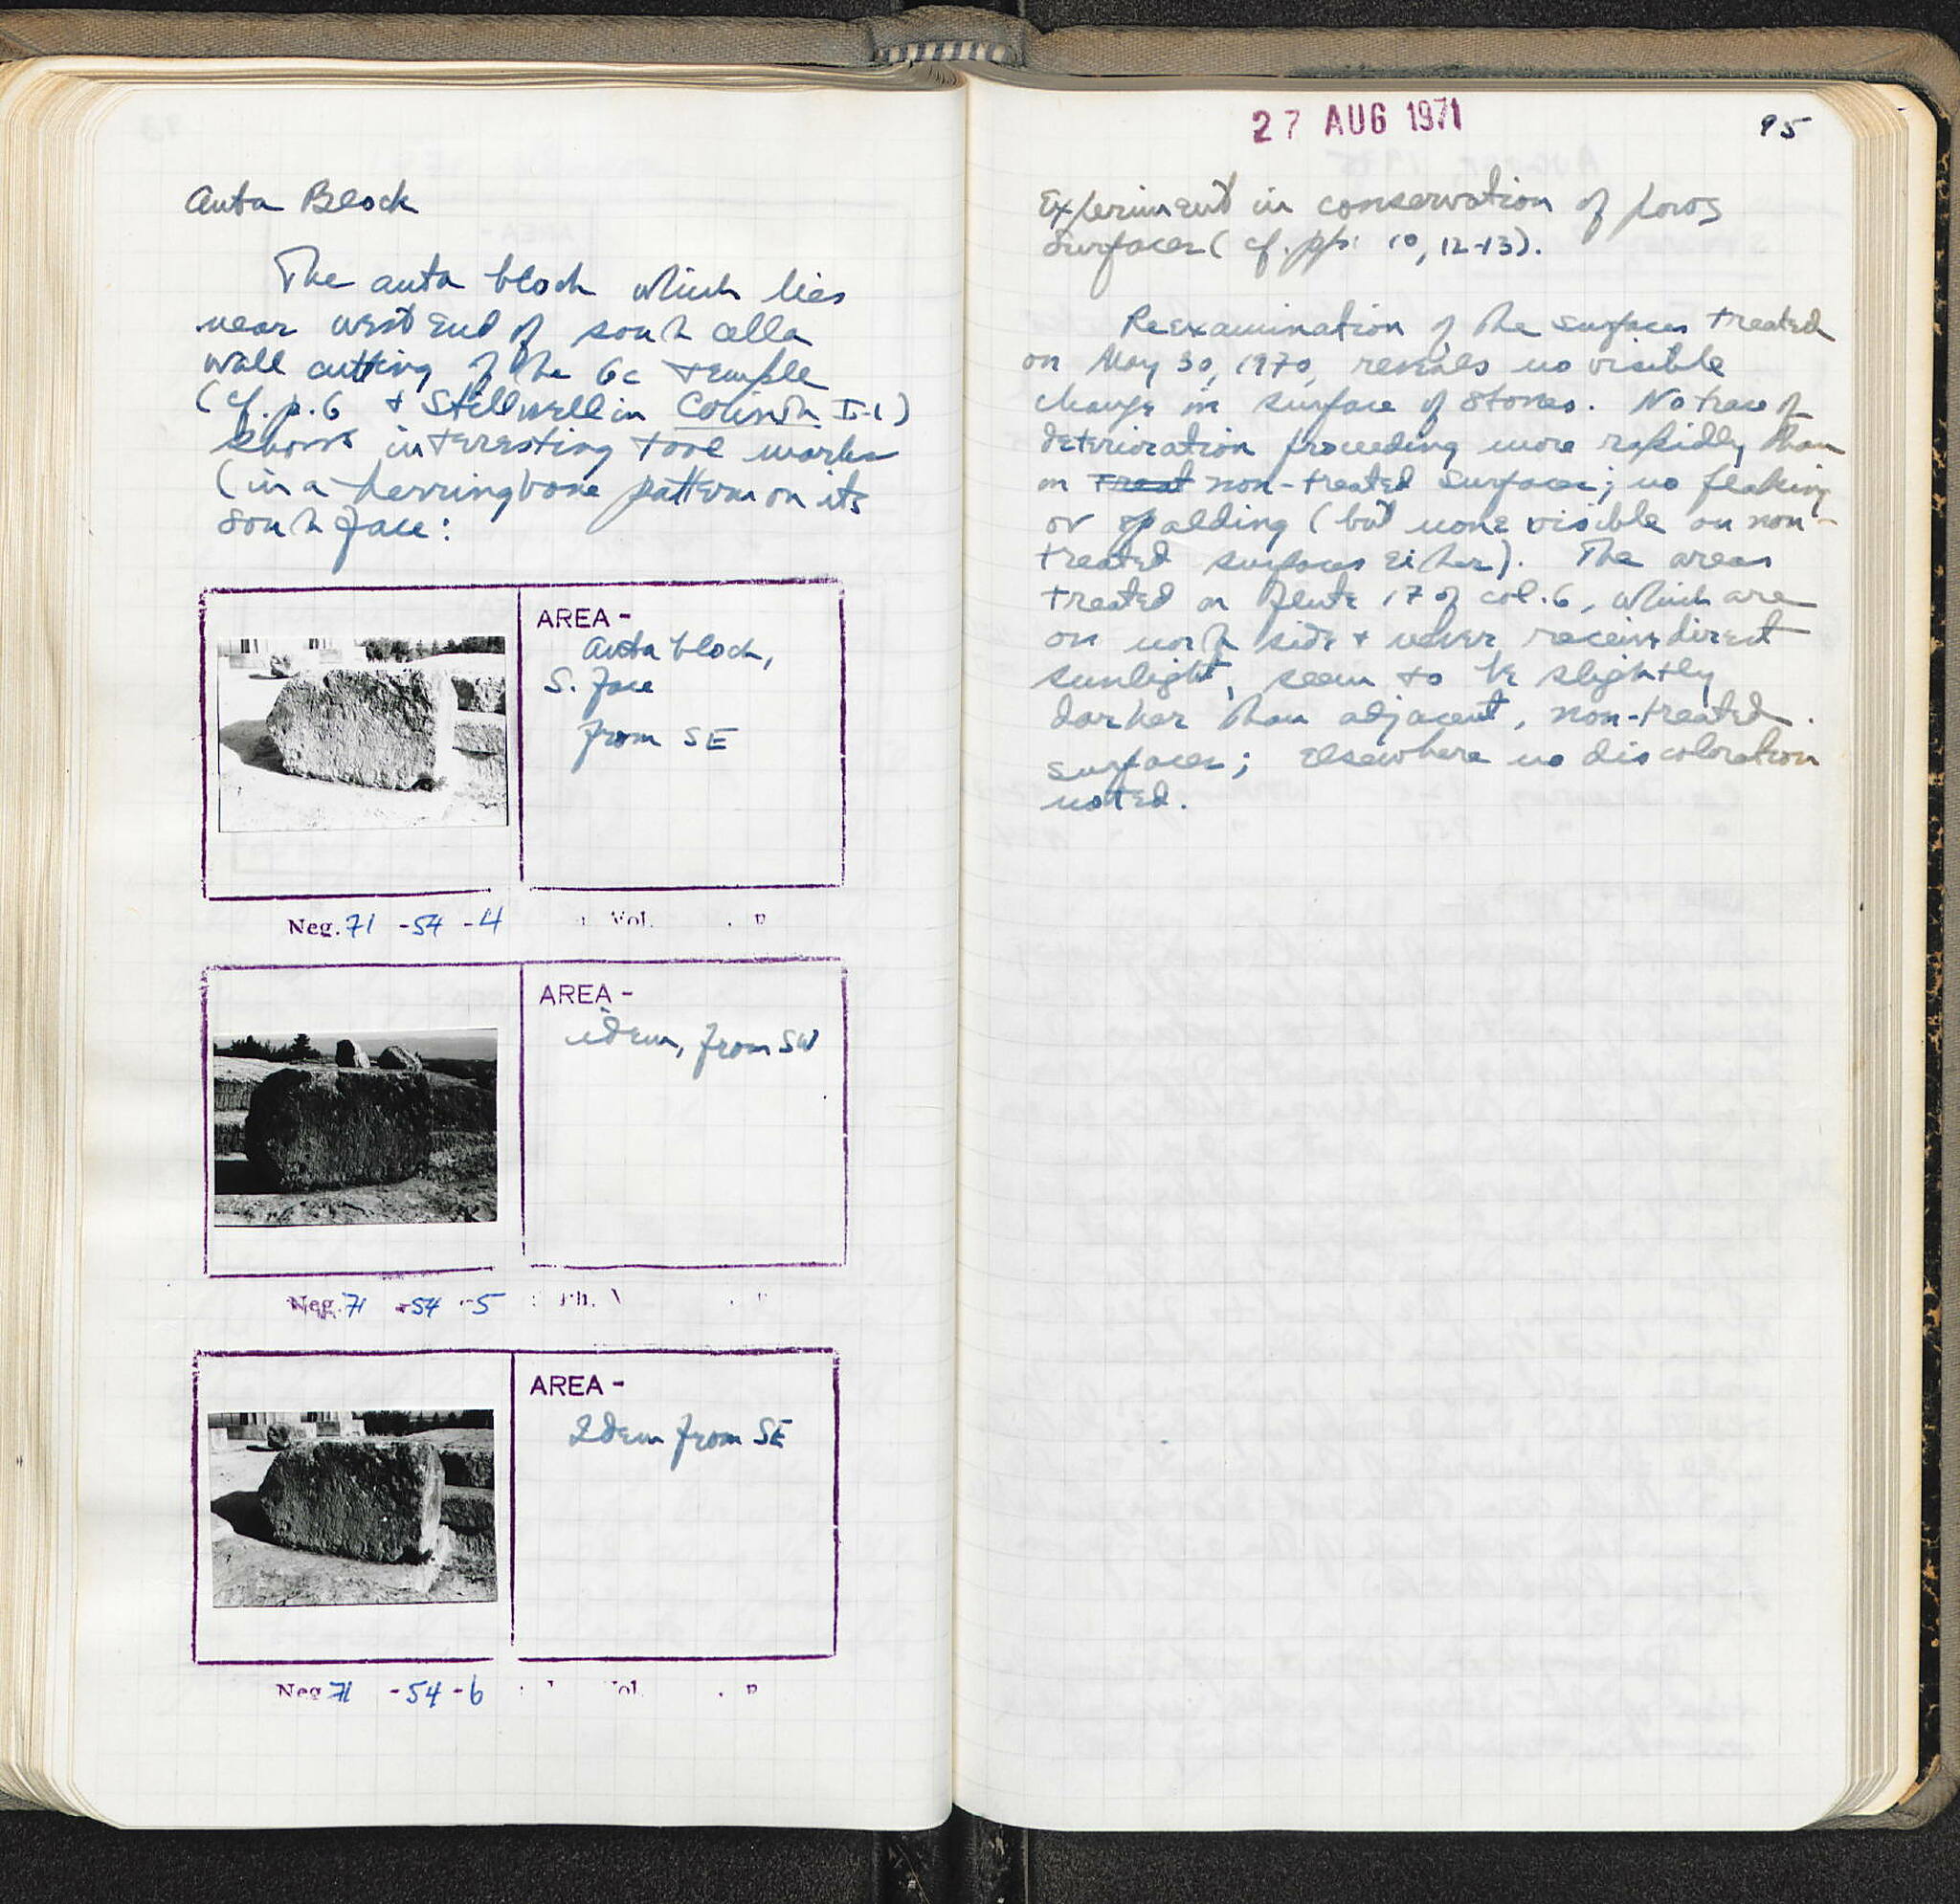 Anta Block
The anta block which lies
near west end of south cella
wall cutting of the 6c temple
(cf. p. 6 + Stillwell in Corinth I-1)
shows interesting tool marks
(in a herringbone pattern on its
south face:
AREA -
Anta block,
S. face
from SE
Neg. 71 -54 -4 Vol.
AREA -
idem, from SW
Neg. 71 -54 -5
AREA -
Idem from SE
Neg 71 -54 -6
27 AUG 1971
95
Experiment in conservation of poros
Surfaces (cf. pp. 10, 12-13).
Reexamination of the surfaces treated
on May 30, 1970, reveals no visible
change in surface of stones. No trace of
deterioration proceeding more rapidly than
on Treat non-treated surfaces; no flaking
or spalding (but none visible on non-
treated surfaces either). The areas
treated on flute 17 of col. 6, which are
on north side + never receive direct
sunlight, seem to be slightly
darker than adjacent, non-treated
surfaces; elsewhere no discoloration
noted.